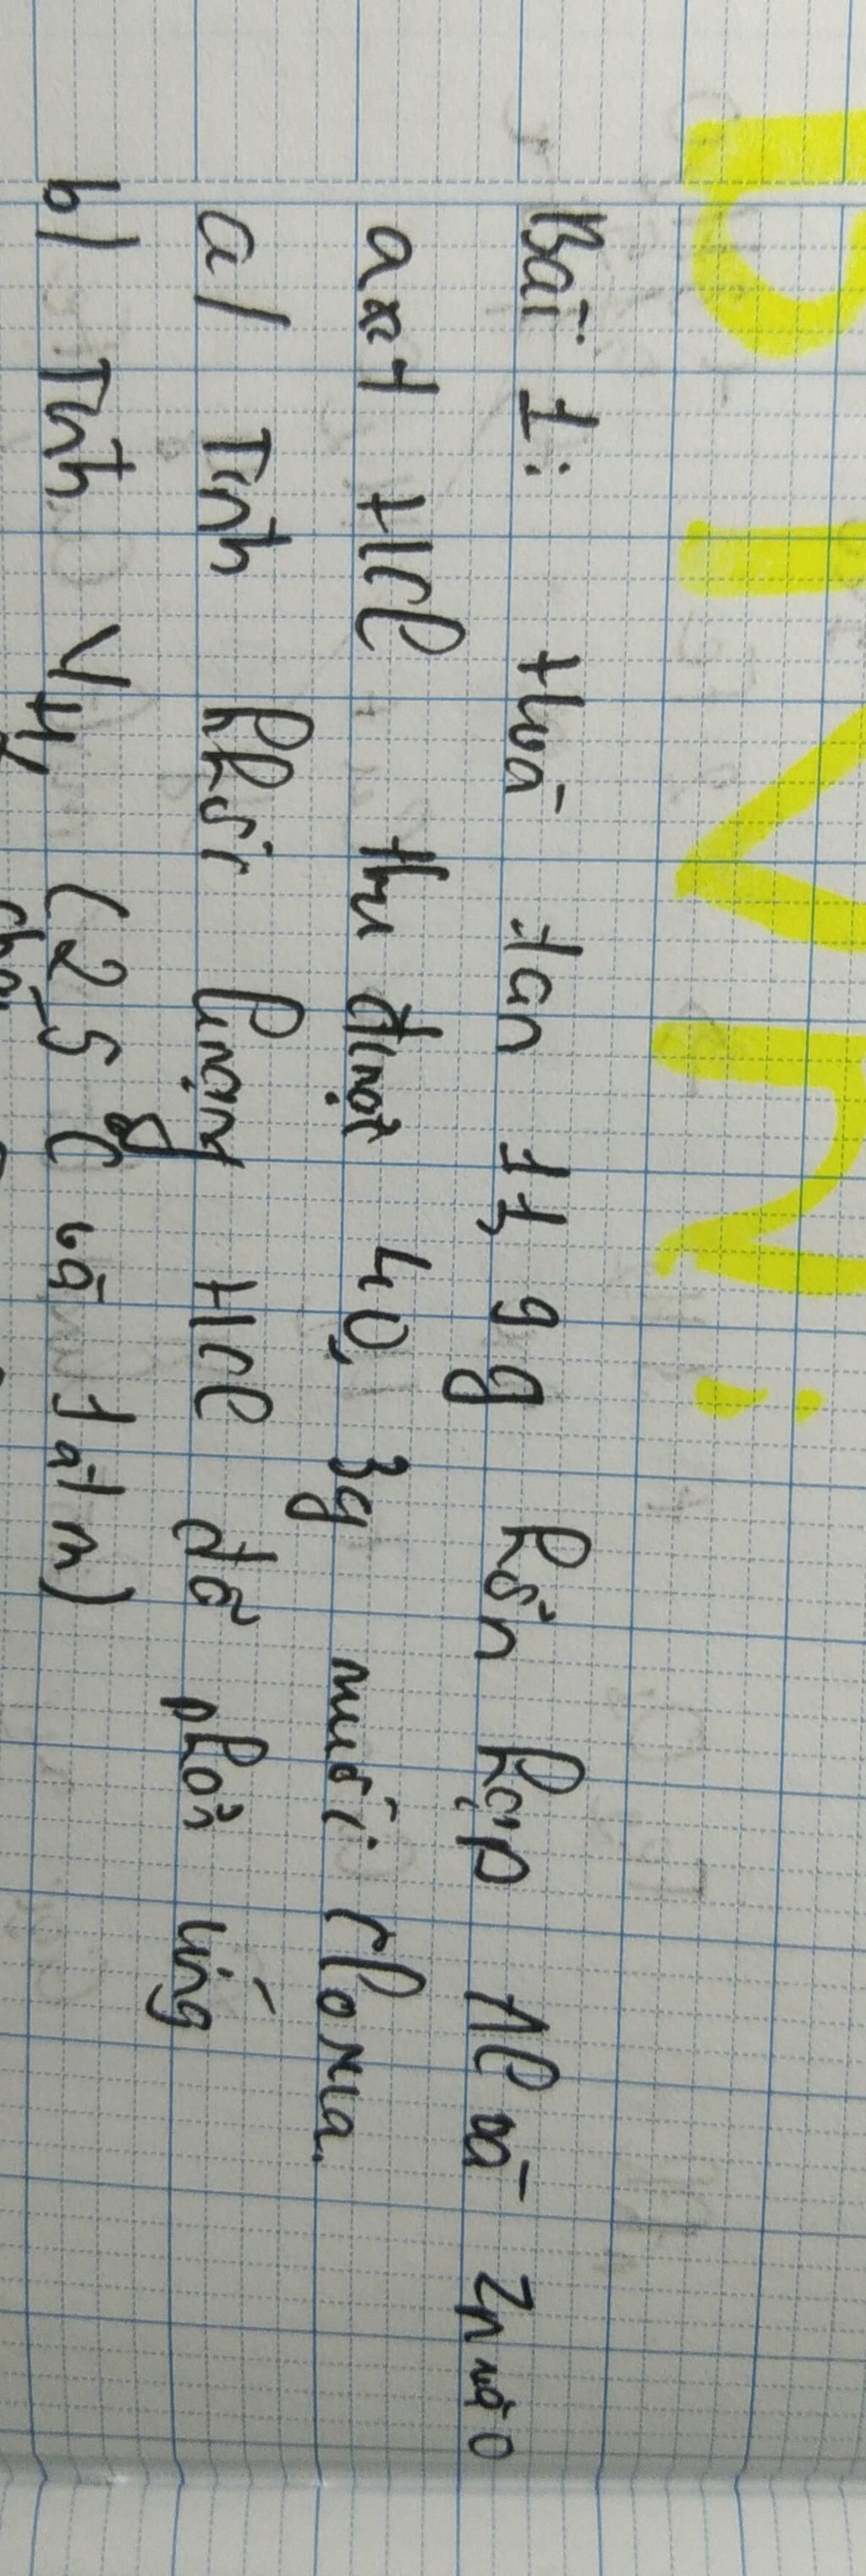 BTVN:
Bài 1: Hoà tan 11,9g hỗn hợp Al và Zn vào
axt HCl thu được 40,3g muối clorua.
a/ Tính khối lượng HCl đã phản ứng
b/ Tính VH2 (25°C và 1 atm)